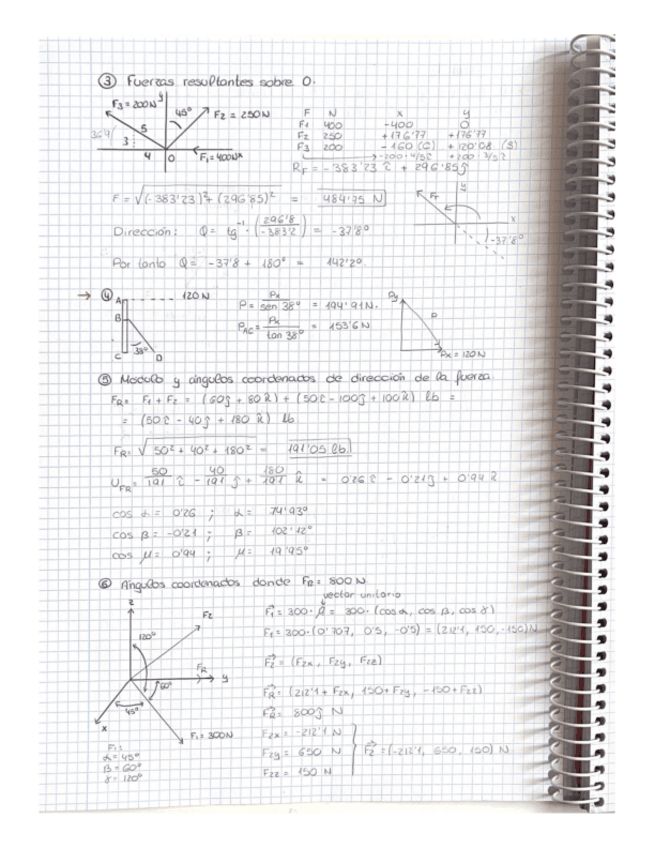 ③ Fuerzas resultantes sobre O.
F3 = 200N y 45° F2 = 250N
5 3 4 O F1 = 400N x
F N x y
F1 400 -400 0
F2 250 +176'77 +176'77
F3 200 -160 (C) +120'08 (S)
-200·4/5 +200·3/5
RF = -383'23 î + 296'85 ĵ
F = √(-383'23)² + (296'85)² = 484'75 N
Dirección: Q = tg⁻¹ · (296'8 / -383'2) = -37'8º
Por tanto Q = -37'8 + 180º = 142'2º
y FT x -37'8º
→ ④ A 120 N
B
C 38º D
P = Px / sen 38º = 194'91N.
PAC = Px / tan 38º = 153'6 N
Py P Px = 120N
⑤ Modulo y angulos coordenados de dirección de la fuerza.
FR = F1 + F2 = (60ĵ + 80k̂) + (50î - 100ĵ + 100k̂) lb =
= (50î - 40ĵ + 180 k̂) lb
FR = √50² + 40² + 180² = 191'05 lb
UFR = 50/191 î - 40/191 ĵ + 180/191 k̂ = 0'26 î - 0'21ĵ + 0'94 k̂
cos α = 0'26 ; α = 74'93º
cos β = -0'21 ; β = 102'12º
cos μ = 0'94 ; μ = 19'95º
⑥ Angulos coordenados donde FR = 800 N
vector unitario
z F2 120º FR y 60º 45º x F1 = 300N
F1:
α = 45º
β = 60º
γ = 120º
F1 = 300 · μ = 300 · (cos α, cos β, cos γ)
F1 = 300 · (0'707, 0'5, -0'5) = (212'1, 150, -150)N
F2 = (F2x, F2y, F2z)
FR = (212'1 + F2x, 150 + F2y, -150 + F2z)
FR = 800ĵ N
F2x = -212'1 N
F2y = 650 N F2 = (-212'1, 650, 150) N
F2z = 150 N